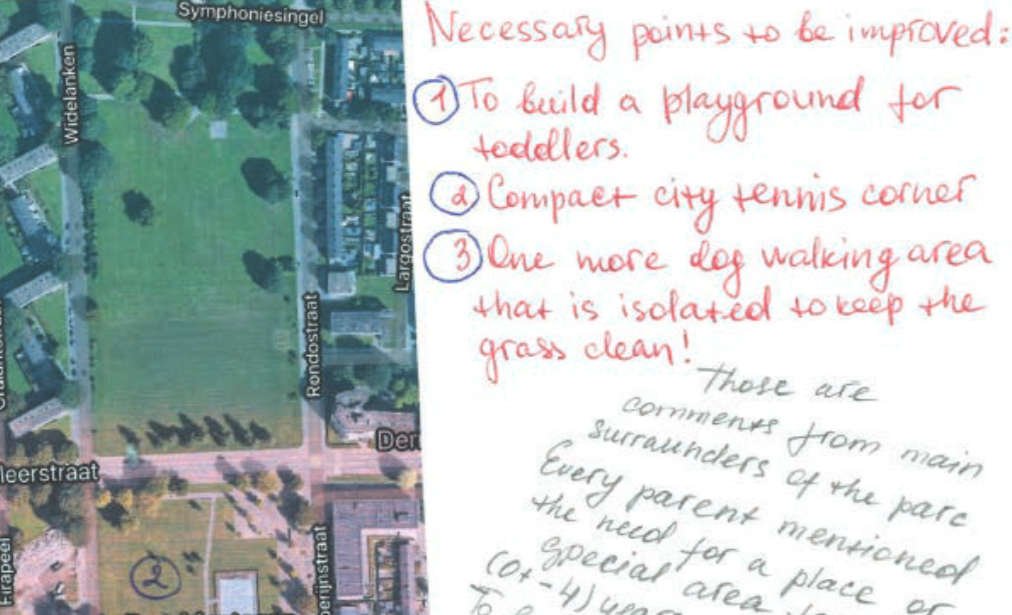 Symphoniesingel
Widelanken
Largostraat
Rondostraat
leerstraat
Eirapeel
erijnstraat
2
Necessary points to be improved:
1 To build a playground for
toddlers.
2 Compact city tennis corner
3 One more dog walking area
that is isolated to keep the
grass clean!
Those are
comments from main
surraunders of the parc
Every parent mentioned
the need for a place or
special area
(0+-4)
To